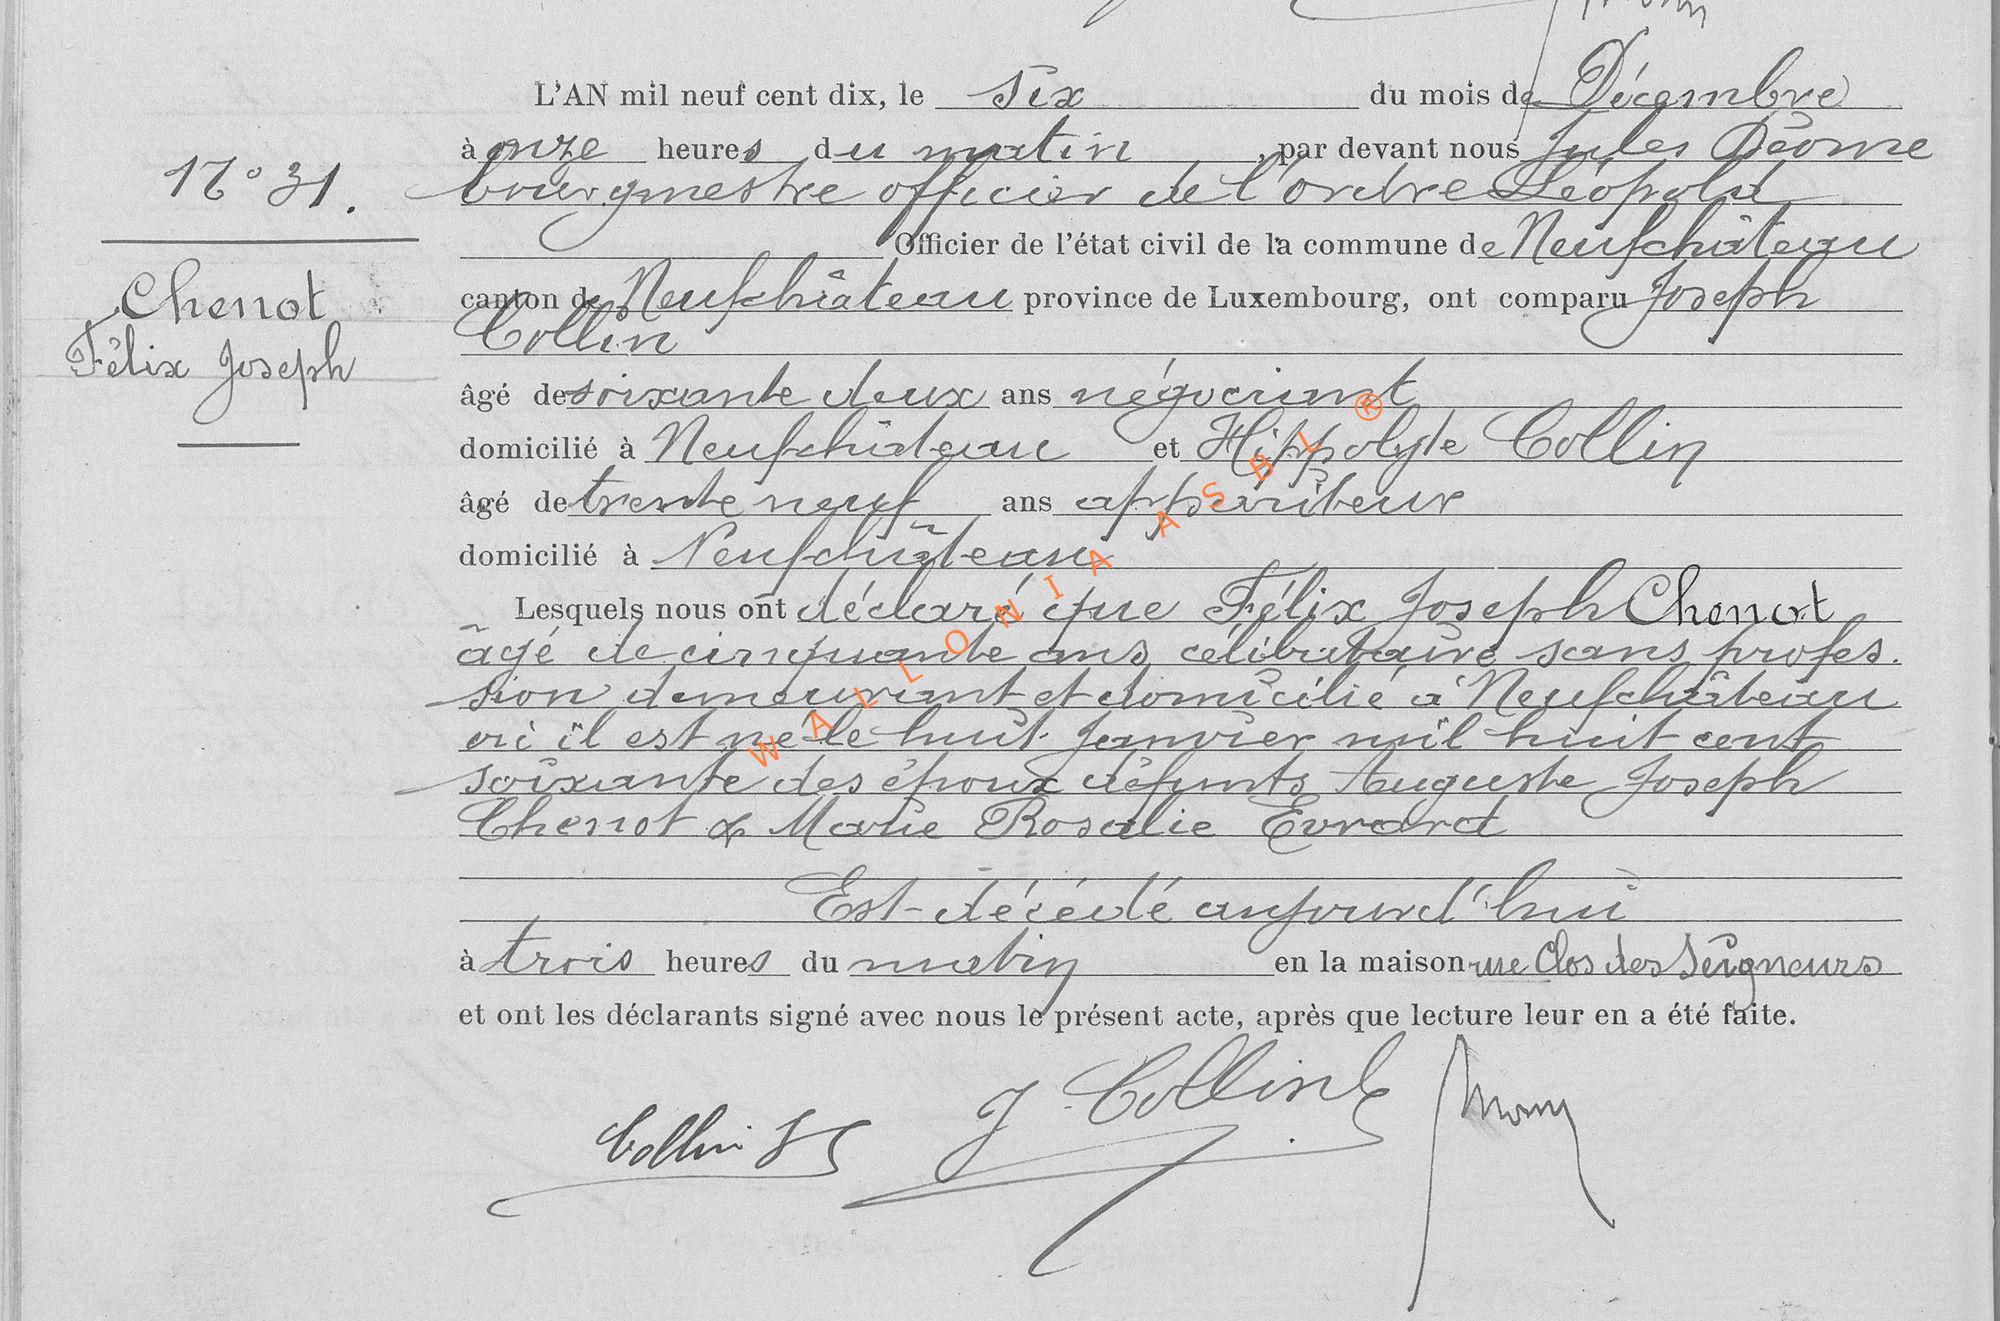 L'AN mil neuf cent dix, le six du mois de Décembre
à onze heures du matin, par devant nous Jules Déome
bourgmestre officier de l'ordre Léopold
Officier de l'état civil de la commune de Neufchâteau
canton de Neufchâteau province de Luxembourg, ont comparu Joseph
Collin
âgé de soixante deux ans négociant
domicilié à Neufchâteau et Hippolyte Collin
âgé de trente neuf ans appariteur
domicilié à Neufchâteau
Lesquels nous ont déclaré que Félix Joseph Chenot
âgé de cinquante ans célibataire sans profes.
sion demeurant et domicilié à Neufchâteau
où il est né le huit Janvier mil huit cent
soixante des époux défunts Auguste Joseph
Chenot & Marie Rosalie Evrard
Est décédé aujourd'hui
à trois heures du matin en la maison rue Clos des Seigneurs
et ont les déclarants signé avec nous le présent acte, après que lecture leur en a été faite.
Collin
J. Collin
N° 31.
Chenot
Félix Joseph
WALLONIA ASBL ®